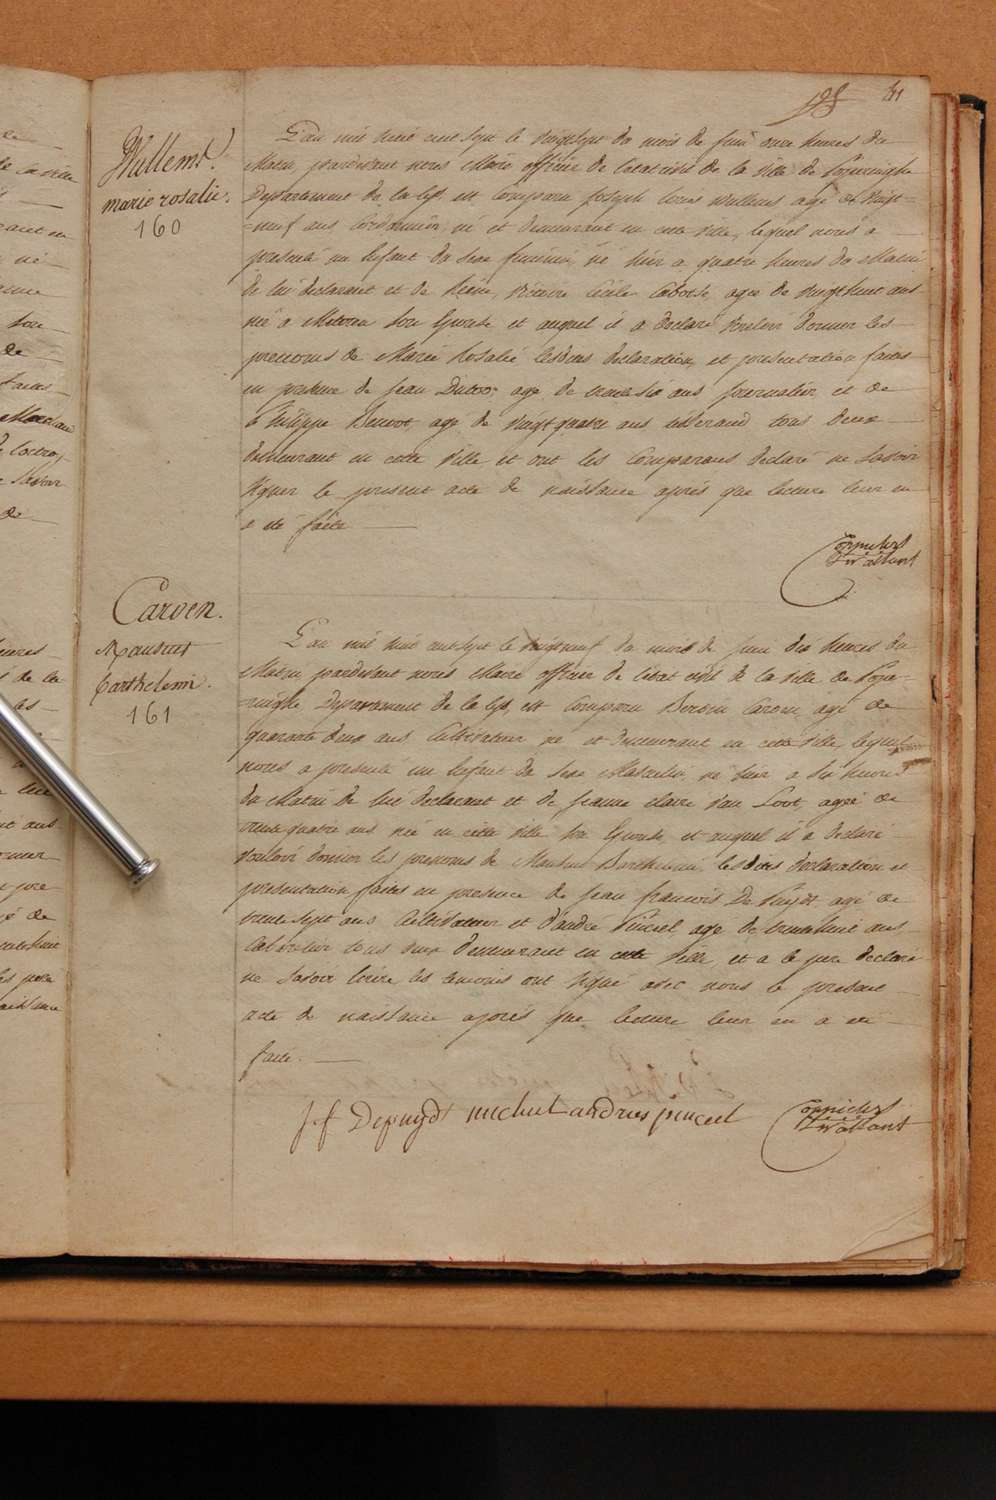 61
Willems.
marie rosalie.
160
L'an mil huit cent sept le vingtsept du mois de Juin onze heures du
Matin pardevant nous Maire officier de l'etat civil de la ville de Poperinghe
Departement de la Lys, est comparu Joseph Louis Willems agé de vingt-
neuf ans Cordonnier né et demeurant en cette ville, lequel nous a
presenté un Enfant du sexe feminin né hier a quatre heures du Matin
de lui declarant et de Cecile agée de vingthuit ans
née a son Epouse et auquel il a declaré vouloir donner les
prenoms de Marie Rosalie lesdites declaration et presentation faites
en presence de Jean agé de trente six ans Journalier et de
Philippe agé de vingt quatre ans tisserand tous deux
demeurant en cette ville et ont les Comparans declaré ne savoir
signer le present acte de naissance aprés que lecture leur en
a été faite
Carven.
Mansuet
Barthelemi.
161
L'an mil huit cent sept le vingtneuf du mois de Juin dix heures du
Matin pardevant nous Maire officier de l'état civil de la ville de Pope-
ringhe Departement de la Lys, est comparu Carven, agé de
quarante deux ans Cultivateur né et demeurant en cette ville, lequel
nous a presenté un Enfant du sexe Masculin, né hier a six heures
du Matin de lui declarant et de Jeanne claire Van Loot, agée de
trente quatre ans née en cette ville son Epouse, et auquel il a declaré
vouloir donner les prenoms de Barthelemi, lesdites declaration et
presentation faites en presence de Jean francois De Puydt agé de
trente sept ans Cultivateur et d'andré Pinceel agé de trentehuit ans,
tous deux demeurant en cette ville, et a le pere declaré
ne savoir Ecrire les temoins ont signé avec nous le present
acte de naissance aprés que lecture leur en a été
faite.
J f Depuydt michiel andries pinceel